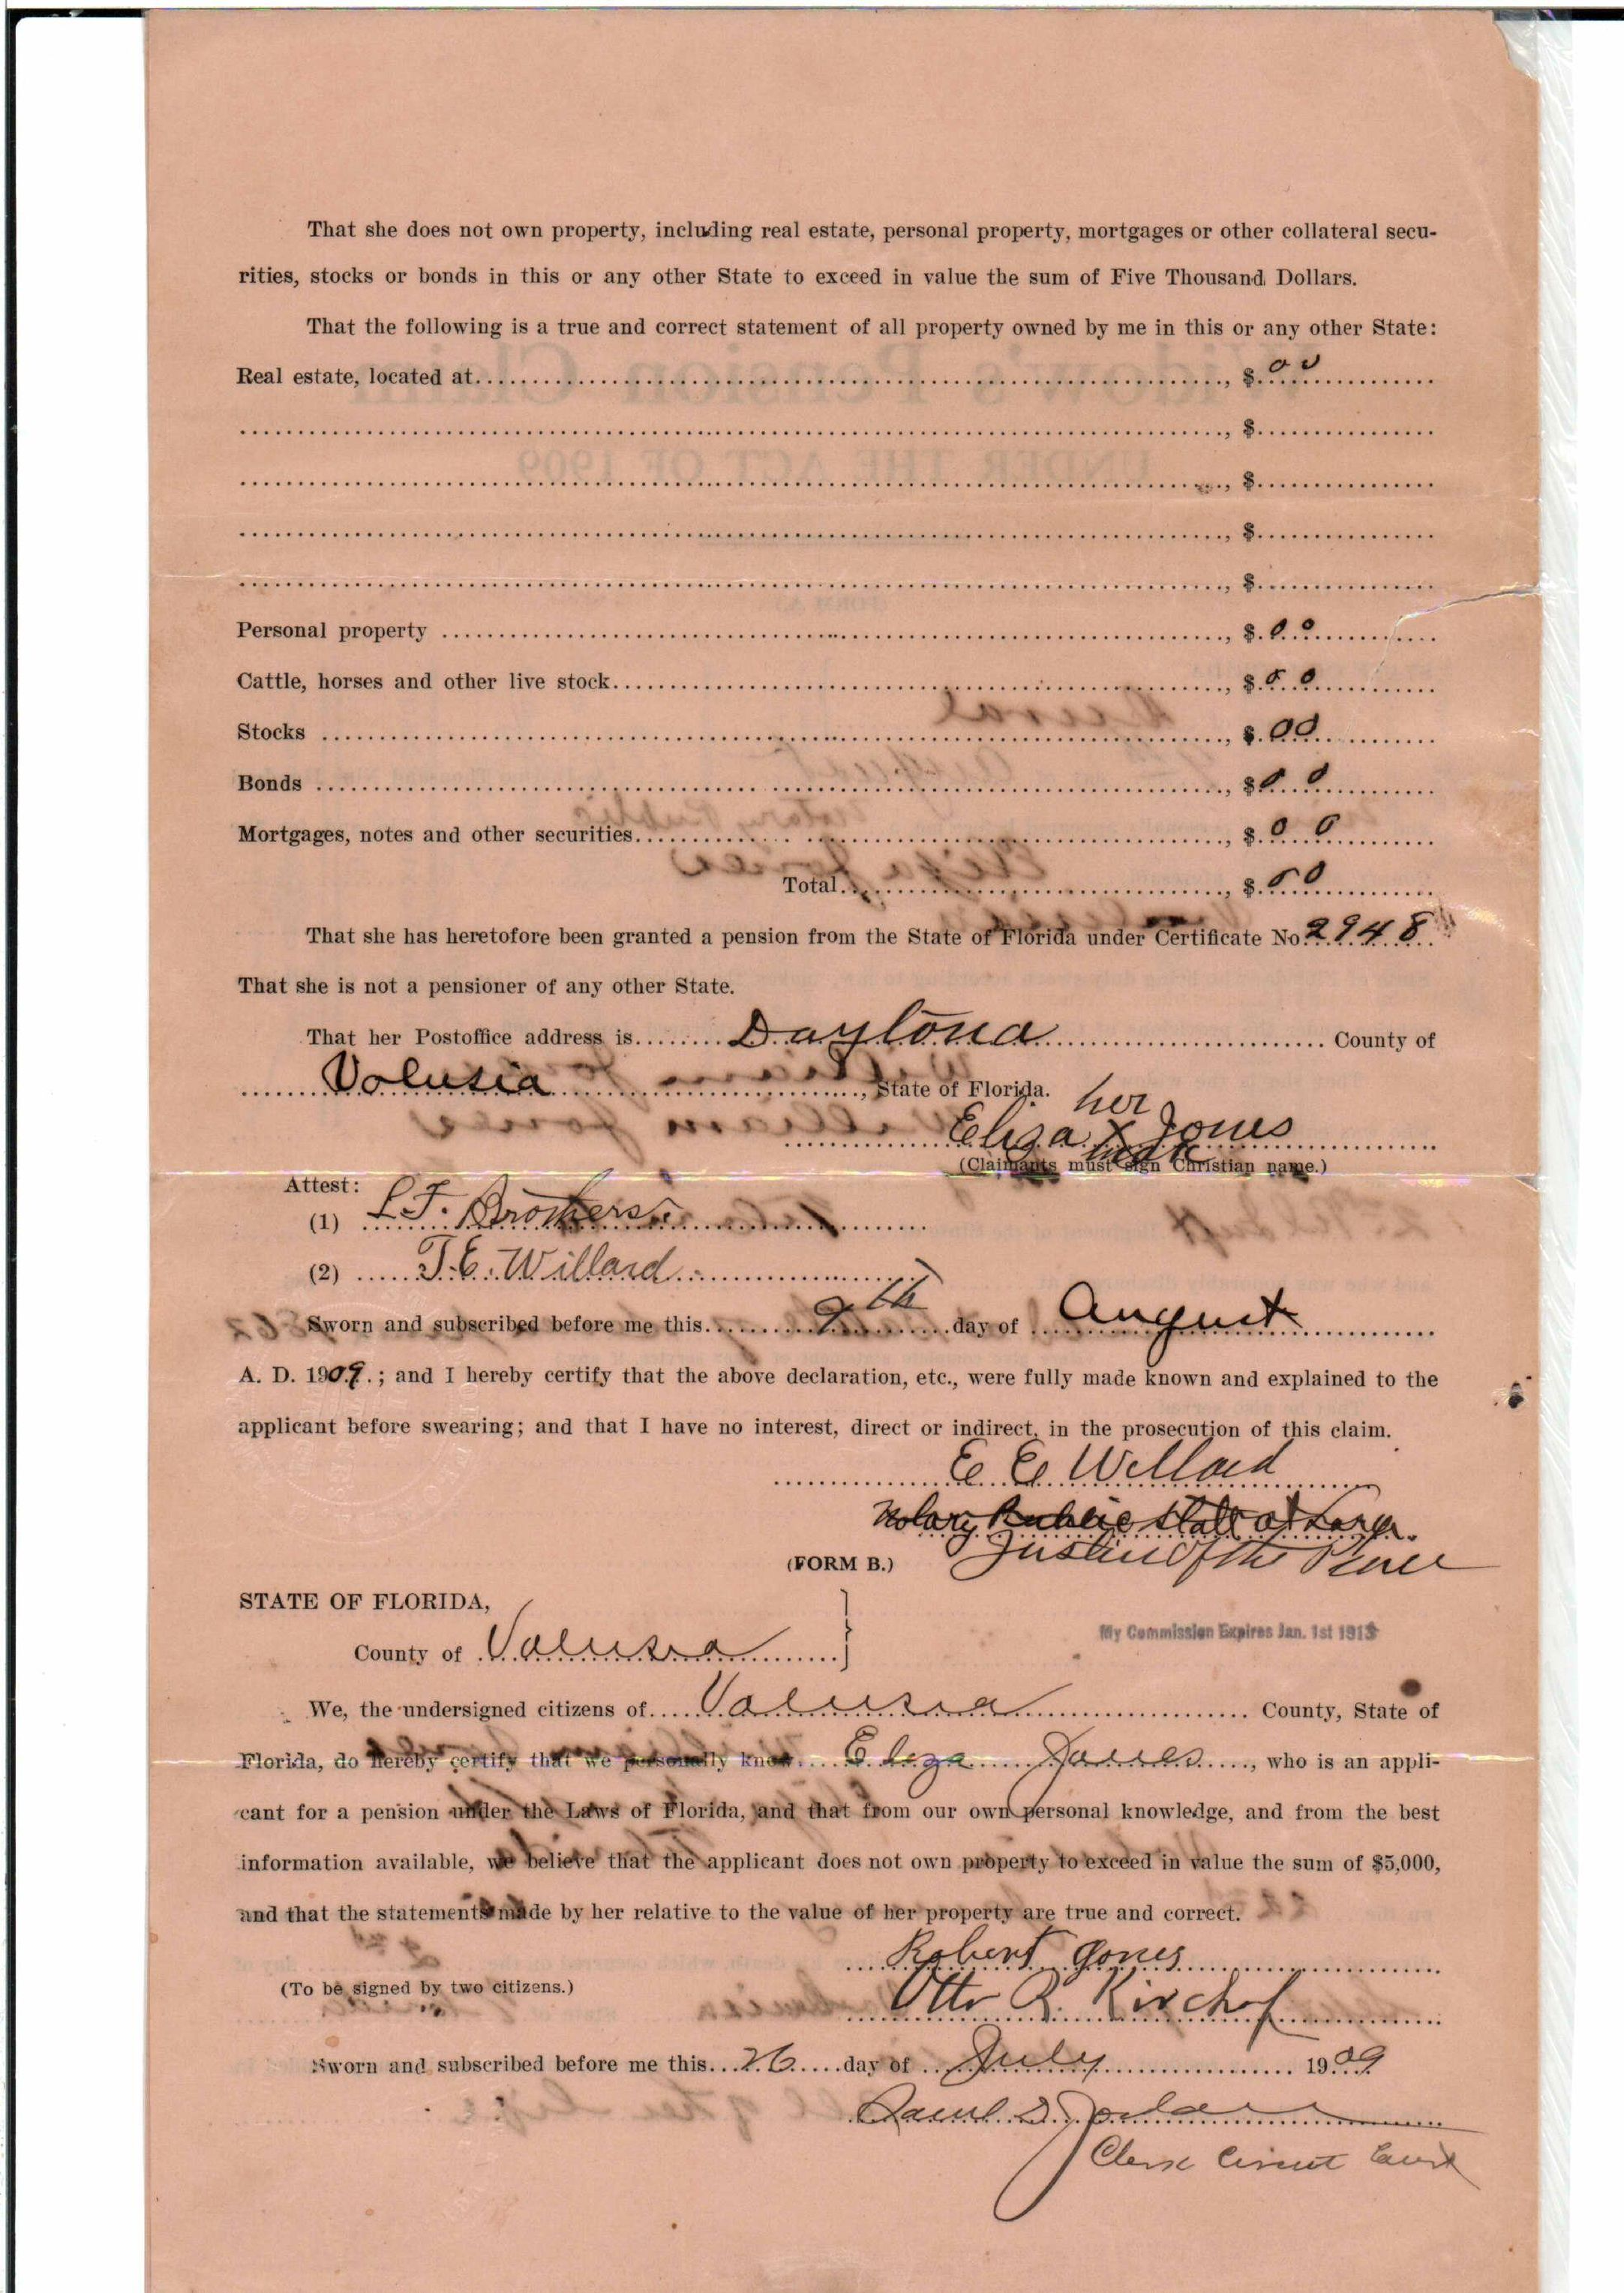 That she does not own property, including real estate, personal property, mortgages or other collateral secu-
rities, stocks or bonds in this or any other State to exceed in value the sum of Five Thousand Dollars.
That the following is a true and correct statement of all property owned by me in this or any other State:
Real estate, located at........, $ 00
........, $........
........, $........
........, $........
........, $........
Personal property ........, $ 00
Cattle, horses and other live stock........, $ 00
Stocks ........, $ 00
Bonds ........, $ 00
Mortgages, notes and other securities........, $ 00
Total........, $ 00
That she has heretofore been granted a pension from the State of Florida under Certificate No. 2948
That she is not a pensioner of any other State.
That her Postoffice address is........Daytona........County of
........Volusia........, State of Florida.
her
Eliza X Jones
mark
(Claimants must sign Christian name.)
Attest:
(1) L.F. Brothers
(2) T.E. Willard
Sworn and subscribed before me this........9th........day of ........August........
A. D. 1909.; and I hereby certify that the above declaration, etc., were fully made known and explained to the
applicant before swearing; and that I have no interest, direct or indirect, in the prosecution of this claim.
E E Willard
Notary Public State at Large.
Justice of the Peace
(FORM B.)
STATE OF FLORIDA,
My Commission Expires Jan. 1st 1913
County of Volusia
We, the undersigned citizens of........Volusia........County, State of
Florida, do hereby certify that we personally know....Eliza Jones...., who is an appli-
cant for a pension under the Laws of Florida, and that from our own personal knowledge, and from the best
information available, we believe that the applicant does not own property to exceed in value the sum of $5,000,
and that the statements made by her relative to the value of her property are true and correct.
Robert Jones
(To be signed by two citizens.)
Otto R. Kirchof
Sworn and subscribed before me this...26....day of...July........1909
Saml D. Jordan
Clerk Circuit Court